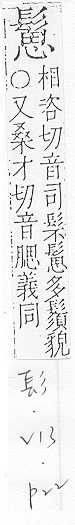 鬗
相咨切音司髤鬗多鬚貌
○又桑才切音腮義同
髟
.
V13
.
p22